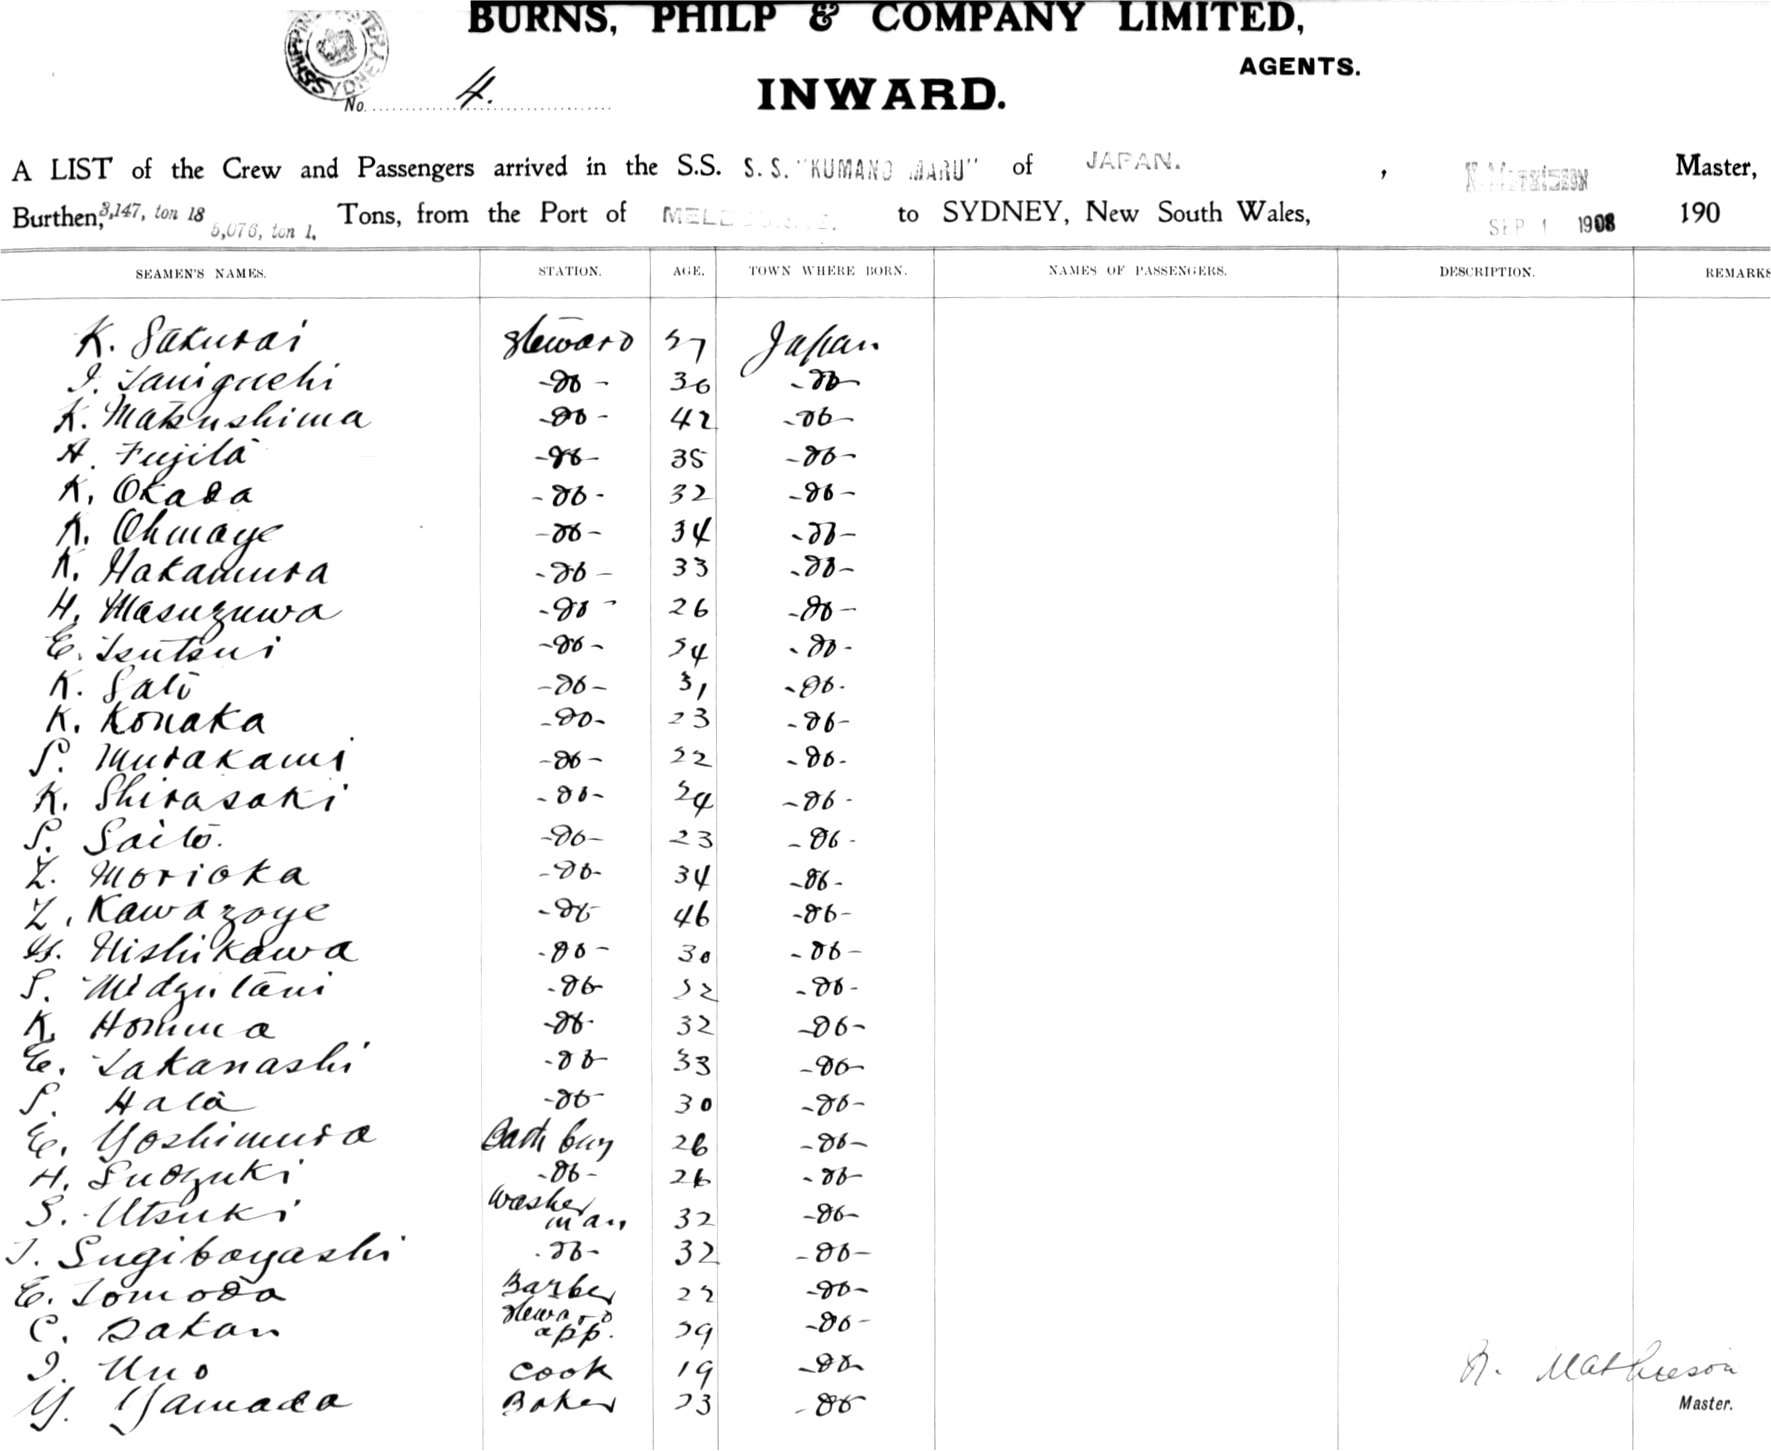 BURNS, PHILP & COMPANY LIMITED,
AGENTS.
SHIPPING MASTER SYDNEY
No. 4.
INWARD.
A LIST of the Crew and Passengers arrived in the S.S. S.S. "KUMANO MARU" of JAPAN. , Master,
Burthen, 3,147, ton 18 Tons, from the Port of MELBOURNE. to SYDNEY, New South Wales, SEP 1 1908 190
5,076, ton 1.
SEAMEN'S NAMES. STATION. AGE. TOWN WHERE BORN. NAMES OF PASSENGERS. DESCRIPTION. REMARKS
K. Sakurai Steward 37 Japan
I. Taniguchi -do- 36 -do-
K. Matsushima -do- 42 -do-
A. Fujita -do- 35 -do-
K. Okada -do- 32 -do-
K. Ohmaye -do- 34 -do-
K. Nakamura -do- 33 -do-
H. Masuzuwa -do- 26 -do-
E. Tsutsui -do- 34 -do-
K. Sato -do- 31 -do-
K. Konaka -do- 23 -do-
S. Murakami -do- 22 -do-
K. Shirasaki -do- 24 -do-
S. Saito. -do- 23 -do-
Z. Morioka -do- 34 -do-
Z. Kawazoye -do- 46 -do-
Y. Nishikawa -do- 30 -do-
S. Midzutani -do- 32 -do-
K. Homma -do- 32 -do-
E. Takanashi -do- 33 -do-
S. Hata -do- 30 -do-
E. Yoshimura Bath boy 26 -do-
H. Sudzuki -do- 26 -do-
S. Utsuki washer man 32 -do-
T. Sugibayashi -do- 32 -do-
E. Tomoda Barber -do-
C. Sakan Steward app. 29 -do-
I. Uno Cook 19 -do-
Y. Yamada Baker 23 -do-
N. Mathieson
Master.